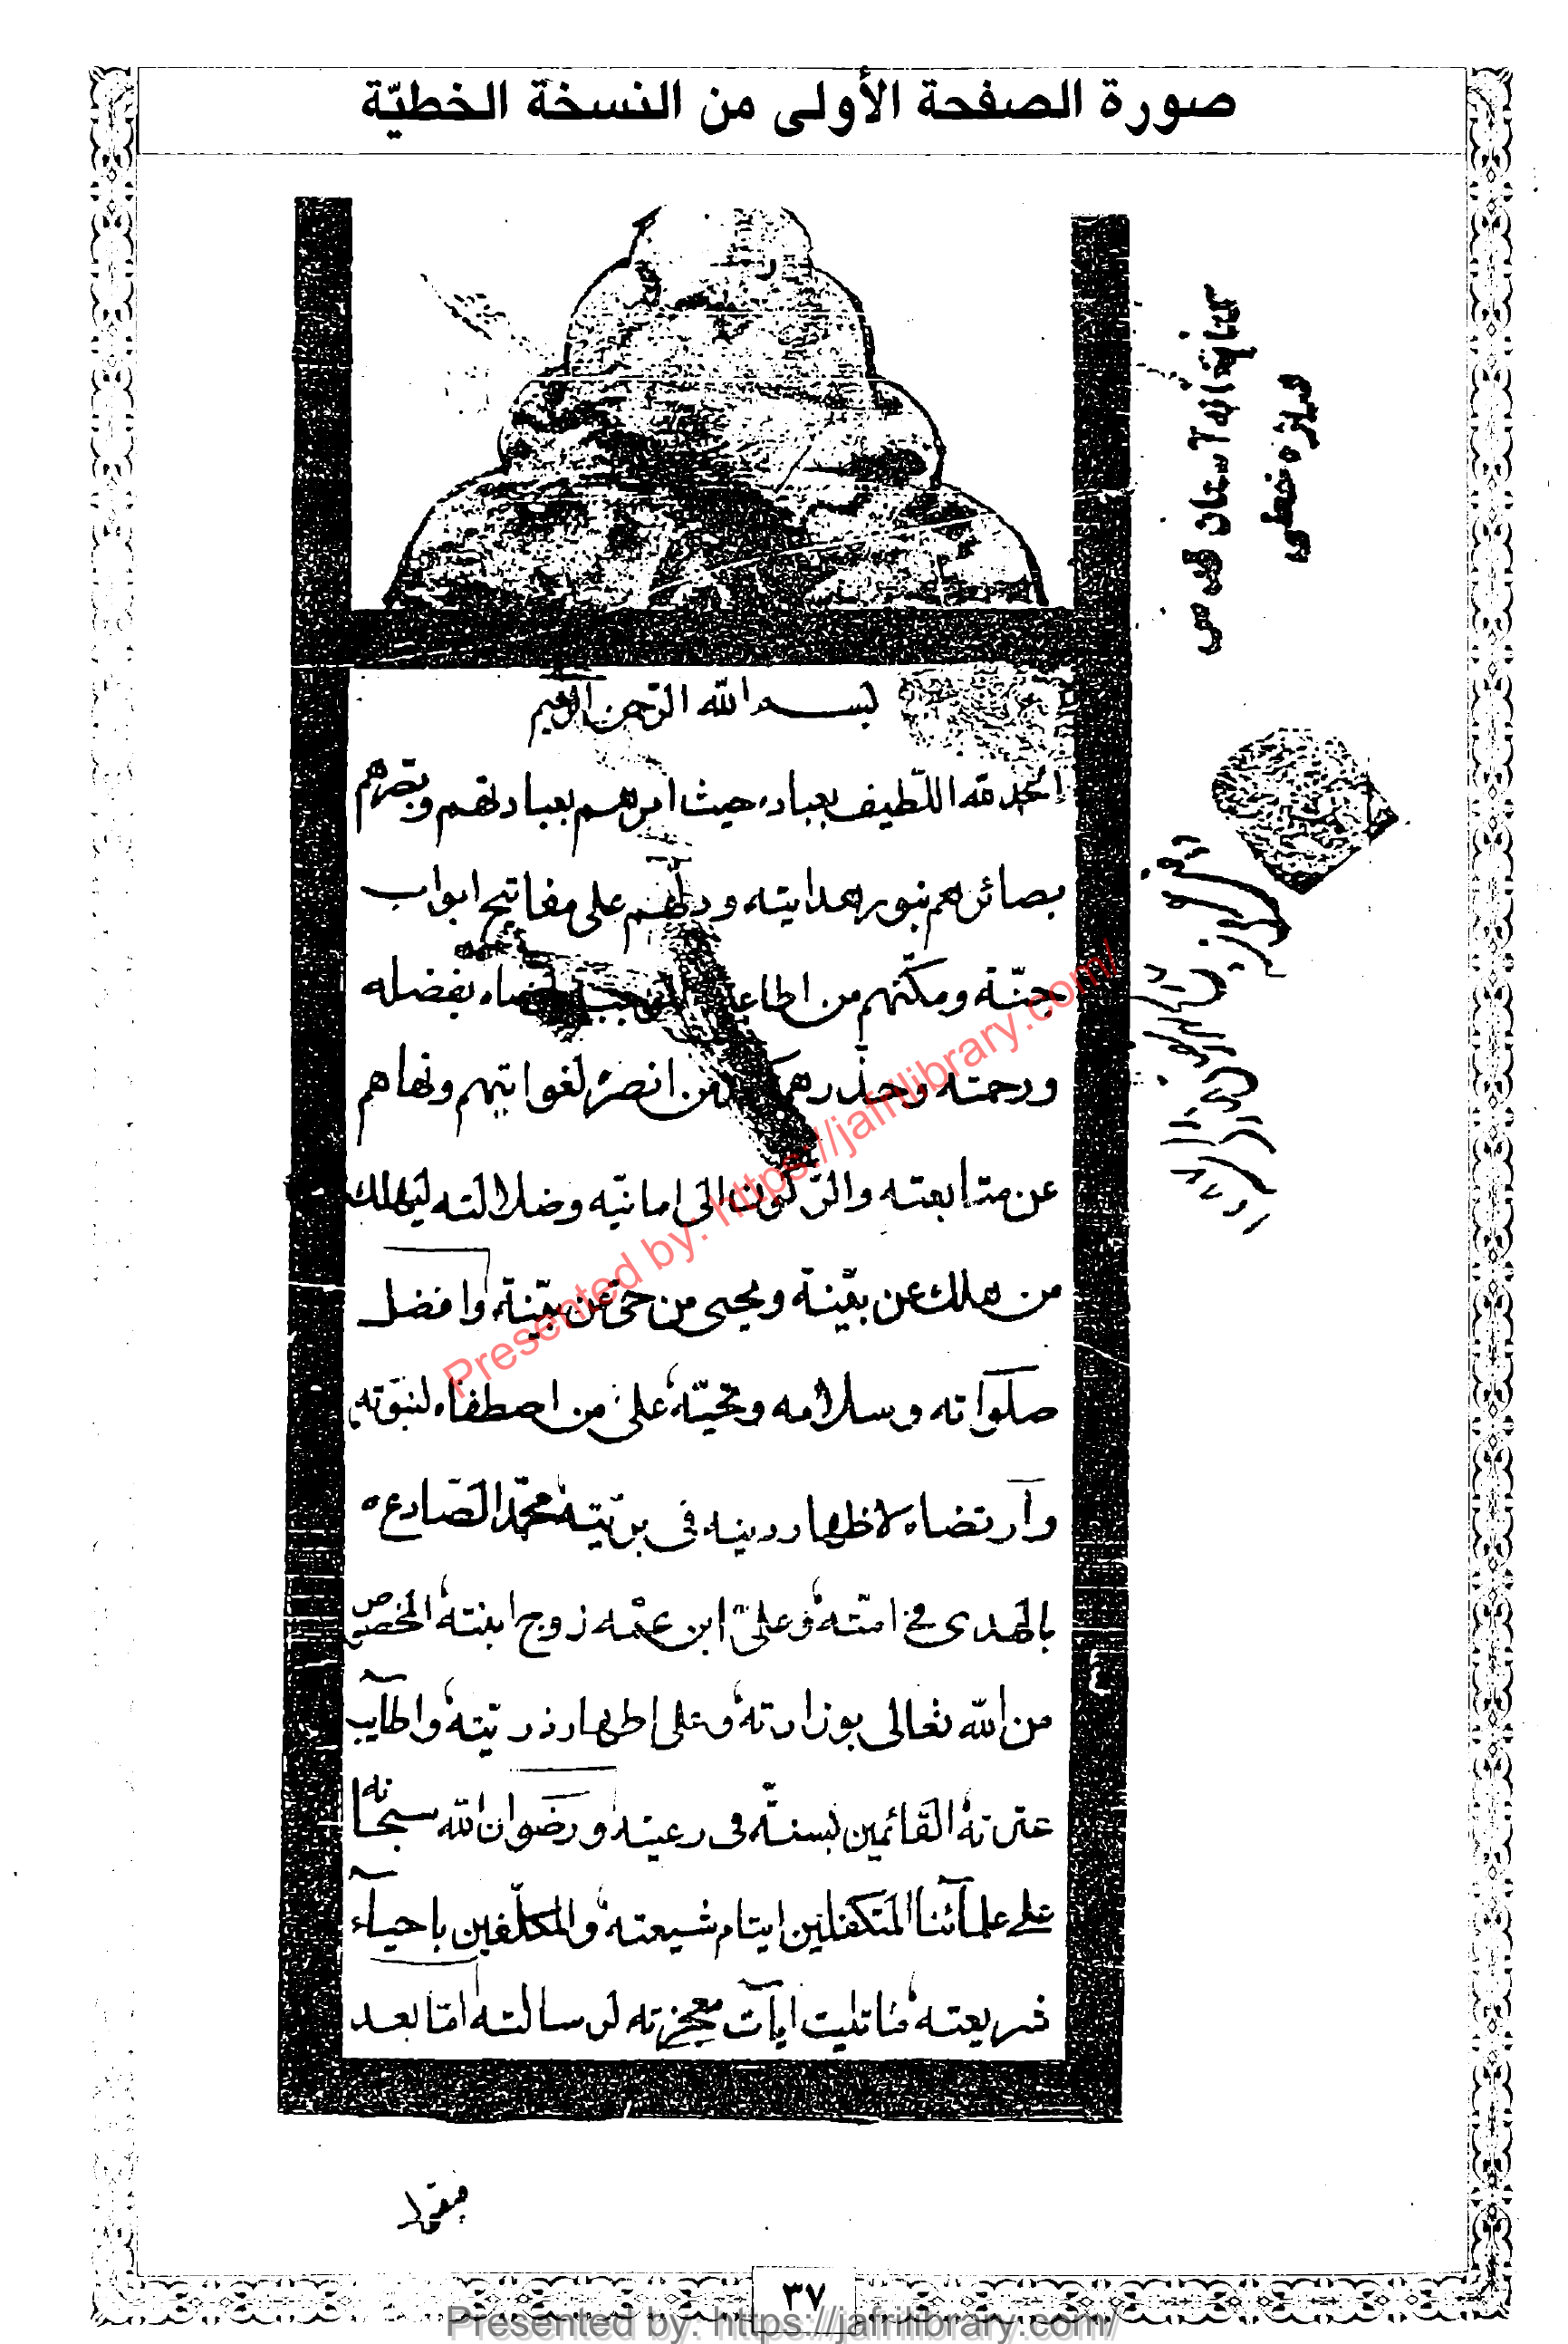 صورة الصفحة الأولى من النسخة الخطيّة
كتابخانه آستان قدس
بسم الله الرّحمن الرحيم
الحمد لله اللّطيف بعباده حيث امرهم بعبادتهم وبصّرهم
بصائرهم بنور هدايته ودلّهم على مفاتيح ابواب
جنّة ومكّنهم من بفضله
ورحمته وحذّرهم من لغواتيهم ونهاهم
عن متابعته والرّكون الى امانيّه وضلالته ليهلك
من هلك عن بيّنة ويحيى من حيّ عن بيّنة وافضل
صلواته وسلامه وتحيّته على من اصطفاه لنبوّته
وآرتضاه لاظهار دينه في بريّته محمّد الصّادع
بالهدى في امّته وعلىّ ابن عمّه زوج ابنته المخصوص
من الله تعالى بوزارته وعلى اطهار ذريّته واطآيب
عترته القائمين بسنّته في رعيته ورضوان الله سبحانه
على علمآئنا المتكفلين ايتام شيعته والمكلّفين باحيآء
شريعته ما تليت ايآت معجزته لرسالته امّا بعد
٣٧
Presented by: https://jafrilibrary.com/
Presented by: https://jafrilibrary.com/